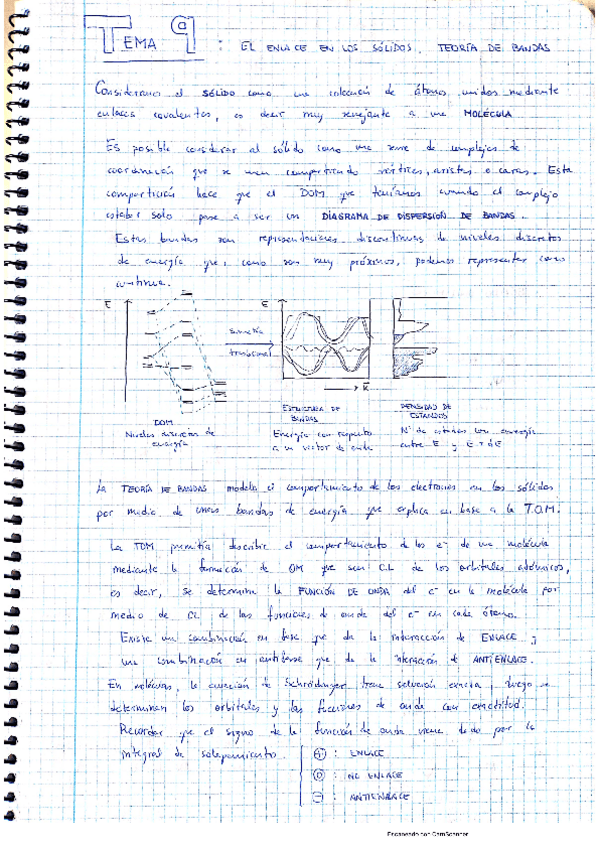 TEMA 9 : EL ENLACE EN LOS SÓLIDOS. TEORÍA DE BANDAS
Consideramos el SÓLIDO como una colección de átomos unidos mediante
enlaces covalentes, es decir muy semejante a una MOLÉCULA
Es posible considerar al sólido como una serie de complejos de
coordinación que se unen compartiendo vértices, aristas o caras. Esta
compartición hace que el DOM que teníamos cuando el complejo
estaba solo pase a ser un DIAGRAMA DE DISPERSIÓN DE BANDAS.
Estas bandas son representaciones discontinuas de niveles discretos
de energía que, como son muy próximos, podemos representar como
continua.
E
simetría
traslacional
E
K
DOM
Niveles discretos de
energía
ESTRUCTURA DE
BANDAS
Energía con respecto
a un vector de onda
DENSIDAD DE
ESTADOS
Nº de estados con energía
entre E y E+dE
La TEORÍA DE BANDAS modela el comportamiento de los electrones en los sólidos
por medio de unas bandas de energía que explica en base a la T.O.M.
La TOM permitía describir el comportamiento de los e- de una molécula
mediante la formación de OM que son CL de los orbitales atómicos,
es decir, se determina la FUNCIÓN DE ONDA del e- en la molécula por
medio de CL de las funciones de onda del e- en cada átomo.
Existe una combinación en fase que da la interacción de ENLACE y
una combinación en antifase que da la interacción de ANTIENLACE.
En moléculas, la ecuación de Schrödinger tiene solución exacta, luego se
determinan los orbitales y las funciones de onda con exactitud.
Recordar que el signo de la función de onda viene dado por la
integral de solapamiento.
+ : ENLACE
0 : NO ENLACE
- : ANTIENLACE
Escaneado con CamScanner